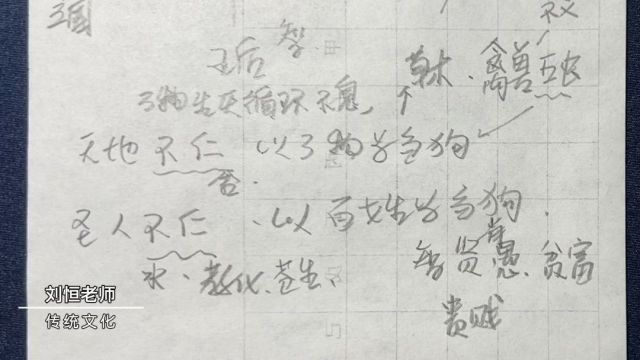 王国
智
王后
万物生灭循环不息,
草木、禽兽
天地不仁 以万物为刍狗
否.
圣人不仁、以百姓为刍狗.
水、教化、苍生、
智贤愚、贫富
贵贱
刘恒老师
传统文化